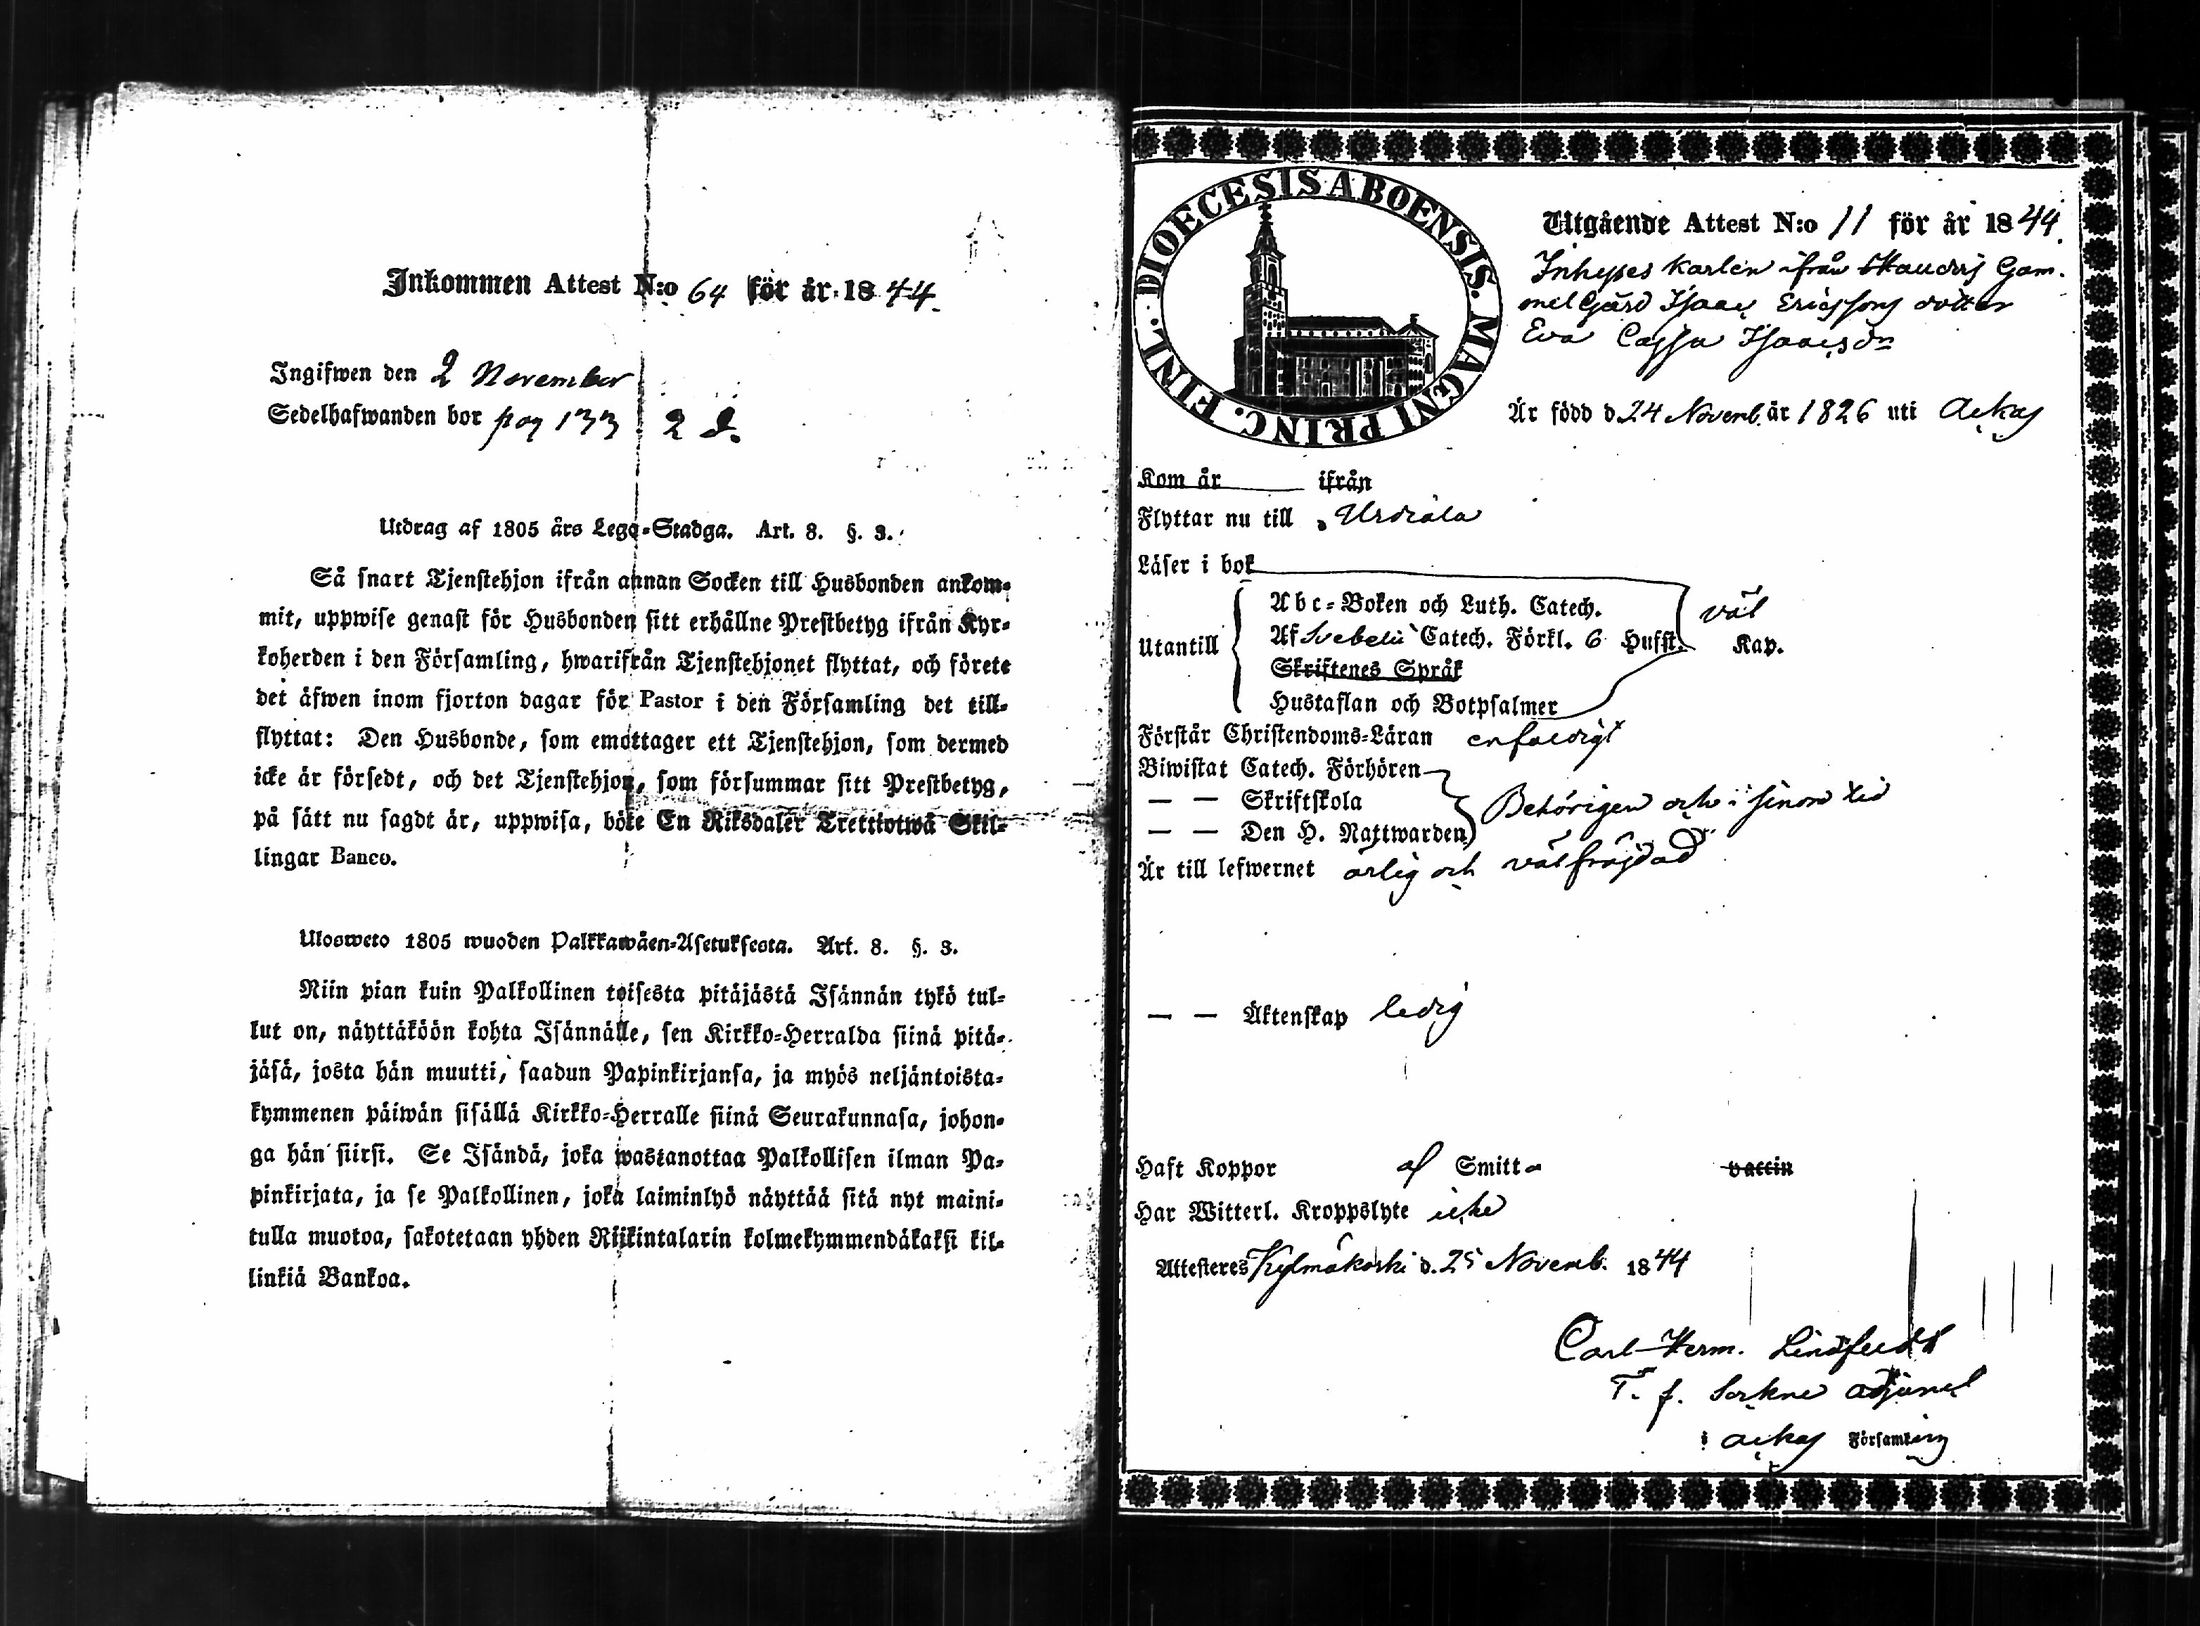 Inkommen Attest N:o 64 för år 1844.
Ingifwen den 2 November
Sedelhafwanden bor pag 133 2 d.
Utdrag af 1805 års Lego-Stadga. Art. 8. §. 3.
Så snart Tjenstehjon ifrån annan Socken till Husbonden ankom-
mit, uppwise genast för Husbonden sitt erhållne Prestbetyg ifrån Kyr-
koherden i den Församling, hwarifrån Tjenstehjonet flyttat, och förete
det äfwen inom fjorton dagar för Pastor i den Församling det till-
flyttat: Den Husbonde, som emottager ett Tjenstehjon, som dermed
icke är försedt, och det Tjenstehjon, som försummar sitt Prestbetyg,
på sätt nu sagdt är, uppwisa, böte En Riksdaler Trettiotwå Skil-
lingar Banco.
Ulosweto 1805 wuoden Palkkawäen-Asetuksesta. Art. 8. §. 3.
Niin pian kuin Palkollinen toisesta pitäjästä Isännän tykö tul-
lut on, näyttäköön kohta Isännälle, sen Kirkko-Herralda siinä pitä-
jäsä, josta hän muutti, saadun Papinkirjansa, ja myös neljäntoista-
kymmenen päiwän sisällä Kirkko-Herralle siinä Seurakunnasa, johon-
ga hän siirsi. Se Isändä, joka wastanottaa Palkollisen ilman Pa-
pinkirjata, ja se Palkollinen, joka laiminlyö näyttää sitä nyt maini-
tulla muotoa, sakotetaan yhden Riikintalarin kolmekymmendäkaksi kil-
linkiä Bankoa.
DIOECESIS ABOENSIS. MAGNI PRINC. FINL.
Utgående Attest N:o 11 för år 1844.
Inhyses karlen ifrån Gam-
melgård Isaac Ericssons dotter
Eva Cajsa Isaacsdr
Är född d. 24 Novemb. år 1826 uti Ackas
Kom år ifrån
Flyttar nu till Urdiala
Läser i bok
väl
Utantill
Abc-Boken och Luth. Catech.
Af Svebelii Catech. Förkl. 6 Hufst. Kap.
Skriftenes Språk
Hustaflan och Botpsalmer
Förstår Christendoms-Läran enfaldigt
Biwistat Catech. Förhören
— — Skriftskola
Behörigen och i sinom tid
— — Den H. Nattwarden
Är till lefwernet ärlig och välfräjdad
— — Äktenskap ledig
Haft Koppor af Smitta vaccin
Har Witterl. Kroppslyte icke
Attesteres Kylmäkoski d. 25 Novemb. 1844
Carl Herm. Lindfeldt
T. f. Sockne adjunct
i Ackas Församling